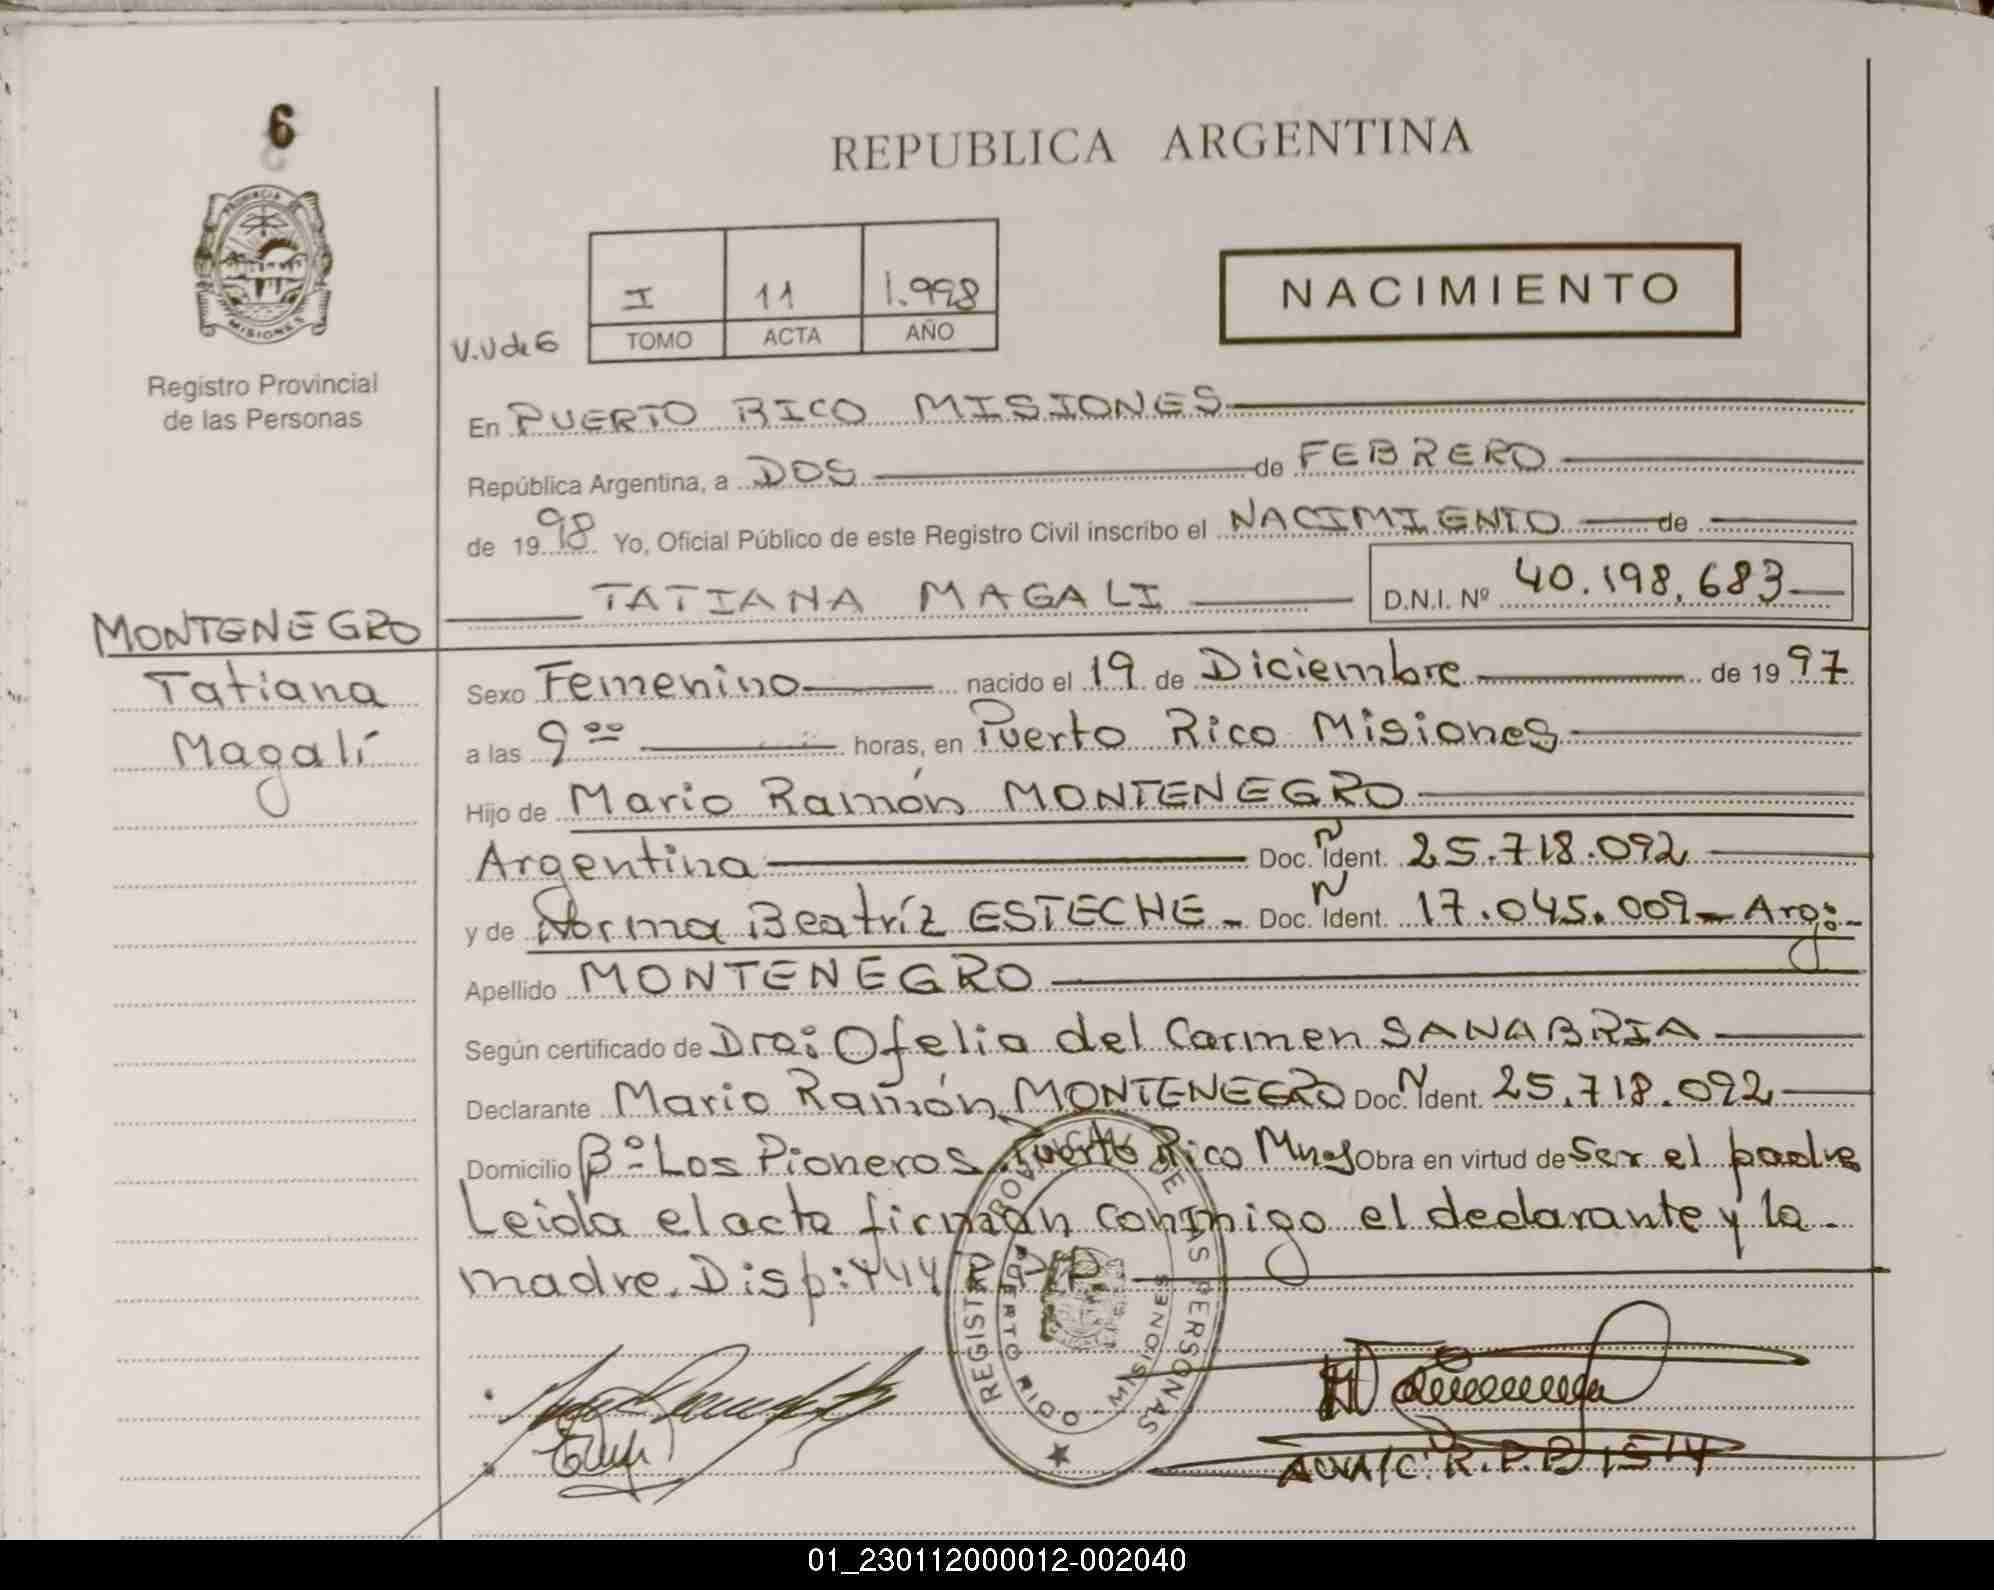 6
REPUBLICA ARGENTINA
PROVINCIA DE
MISIONES
Registro Provincial
de las Personas
I 11 1.998
TOMO ACTA AÑO
V.V de 6
NACIMIENTO
En PUERTO RICO MISIONES
República Argentina, a DOS de FEBRERO
de 1998 Yo, Oficial Público de este Registro Civil inscribo el NACIMIENTO de
TATIANA MAGALI D.N.I. Nº 40.198.683
MONTENEGRO
Tatiana
Magalí
Sexo Femenino nacido el 19 de Diciembre de 1997
a las 9 00 horas, en Puerto Rico Misiones
Hijo de Mario Ramón MONTENEGRO
Argentina Doc. Ñ Ident. 25.718.092
y de Norma Beatríz ESTECHE Doc. Ñ Ident. 17.045.009 - Arg:
Apellido MONTENEGRO
Según certificado de Dra: Ofelia del Carmen SANABRIA
Declarante Mario Ramón MONTENEGRO Doc. N Ident. 25.718.092
Domicilio Bº Los Pioneros Puerto Rico Mnes Obra en virtud de ser el padre
Leida el acta firman conmigo el declarante y la
madre. Disp: 444
REGISTRO PROVINCIAL DE LAS PERSONAS
PUERTO RICO - MISIONES
R.P.P 1514
01_230112000012-002040